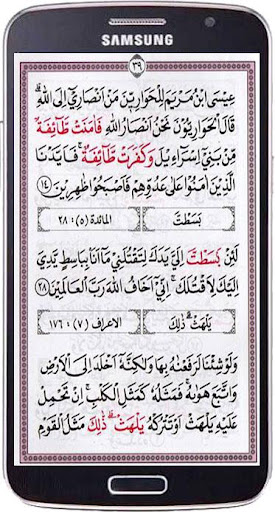 SAMSUNG
٣٩
عِيسَى ابْنُ مَرْيَمَ لِلْحَوَارِيّٖنَ مَنْ اَنْصَارِيْٓ اِلَى اللّٰهِ ؕ
قَالَ الْحَوَارِيُّوْنَ نَحْنُ اَنْصَارُ اللّٰهِ فَاٰمَنَتْ طَّآئِفَةٌ
مِّنْۢ بَنِيْٓ اِسْرَآءِيْلَ وَكَفَرَتْ طَّآئِفَةٌ ۚ فَاَيَّدْنَا
الَّذِيْنَ اٰمَنُوْا عَلٰى عَدُوِّهِمْ فَاَصْبَحُوْا ظٰهِرِيْنَ ﴿١٤﴾
بَسَطْتَّ
المائدة (٥) : ٢٨
لَئِنْۢ بَسَطْتَّ اِلَيَّ يَدَكَ لِتَقْتُلَنِيْ مَآ اَنَا بِبَاسِطٍ يَّدِيَ
اِلَيْكَ لِاَقْتُلَكَ ۚ اِنِّيْٓ اَخَافُ اللّٰهَ رَبَّ الْعٰلَمِيْنَ ﴿٢٨﴾
يَلْهَثْ ؕ ذٰلِكَ
الاعراف (٧) : ١٧٦
وَلَوْ شِئْنَا لَرَفَعْنٰهُ بِهَا وَلٰكِنَّهٗٓ اَخْلَدَ اِلَى الْاَرْضِ
وَاتَّبَعَ هَوٰىهُ ۚ فَمَثَلُهٗ كَمَثَلِ الْكَلْبِ ۚ اِنْ تَحْمِلْ
عَلَيْهِ يَلْهَثْ اَوْ تَتْرُكْهُ يَلْهَثْ ؕ ذٰلِكَ مَثَلُ الْقَوْمِ